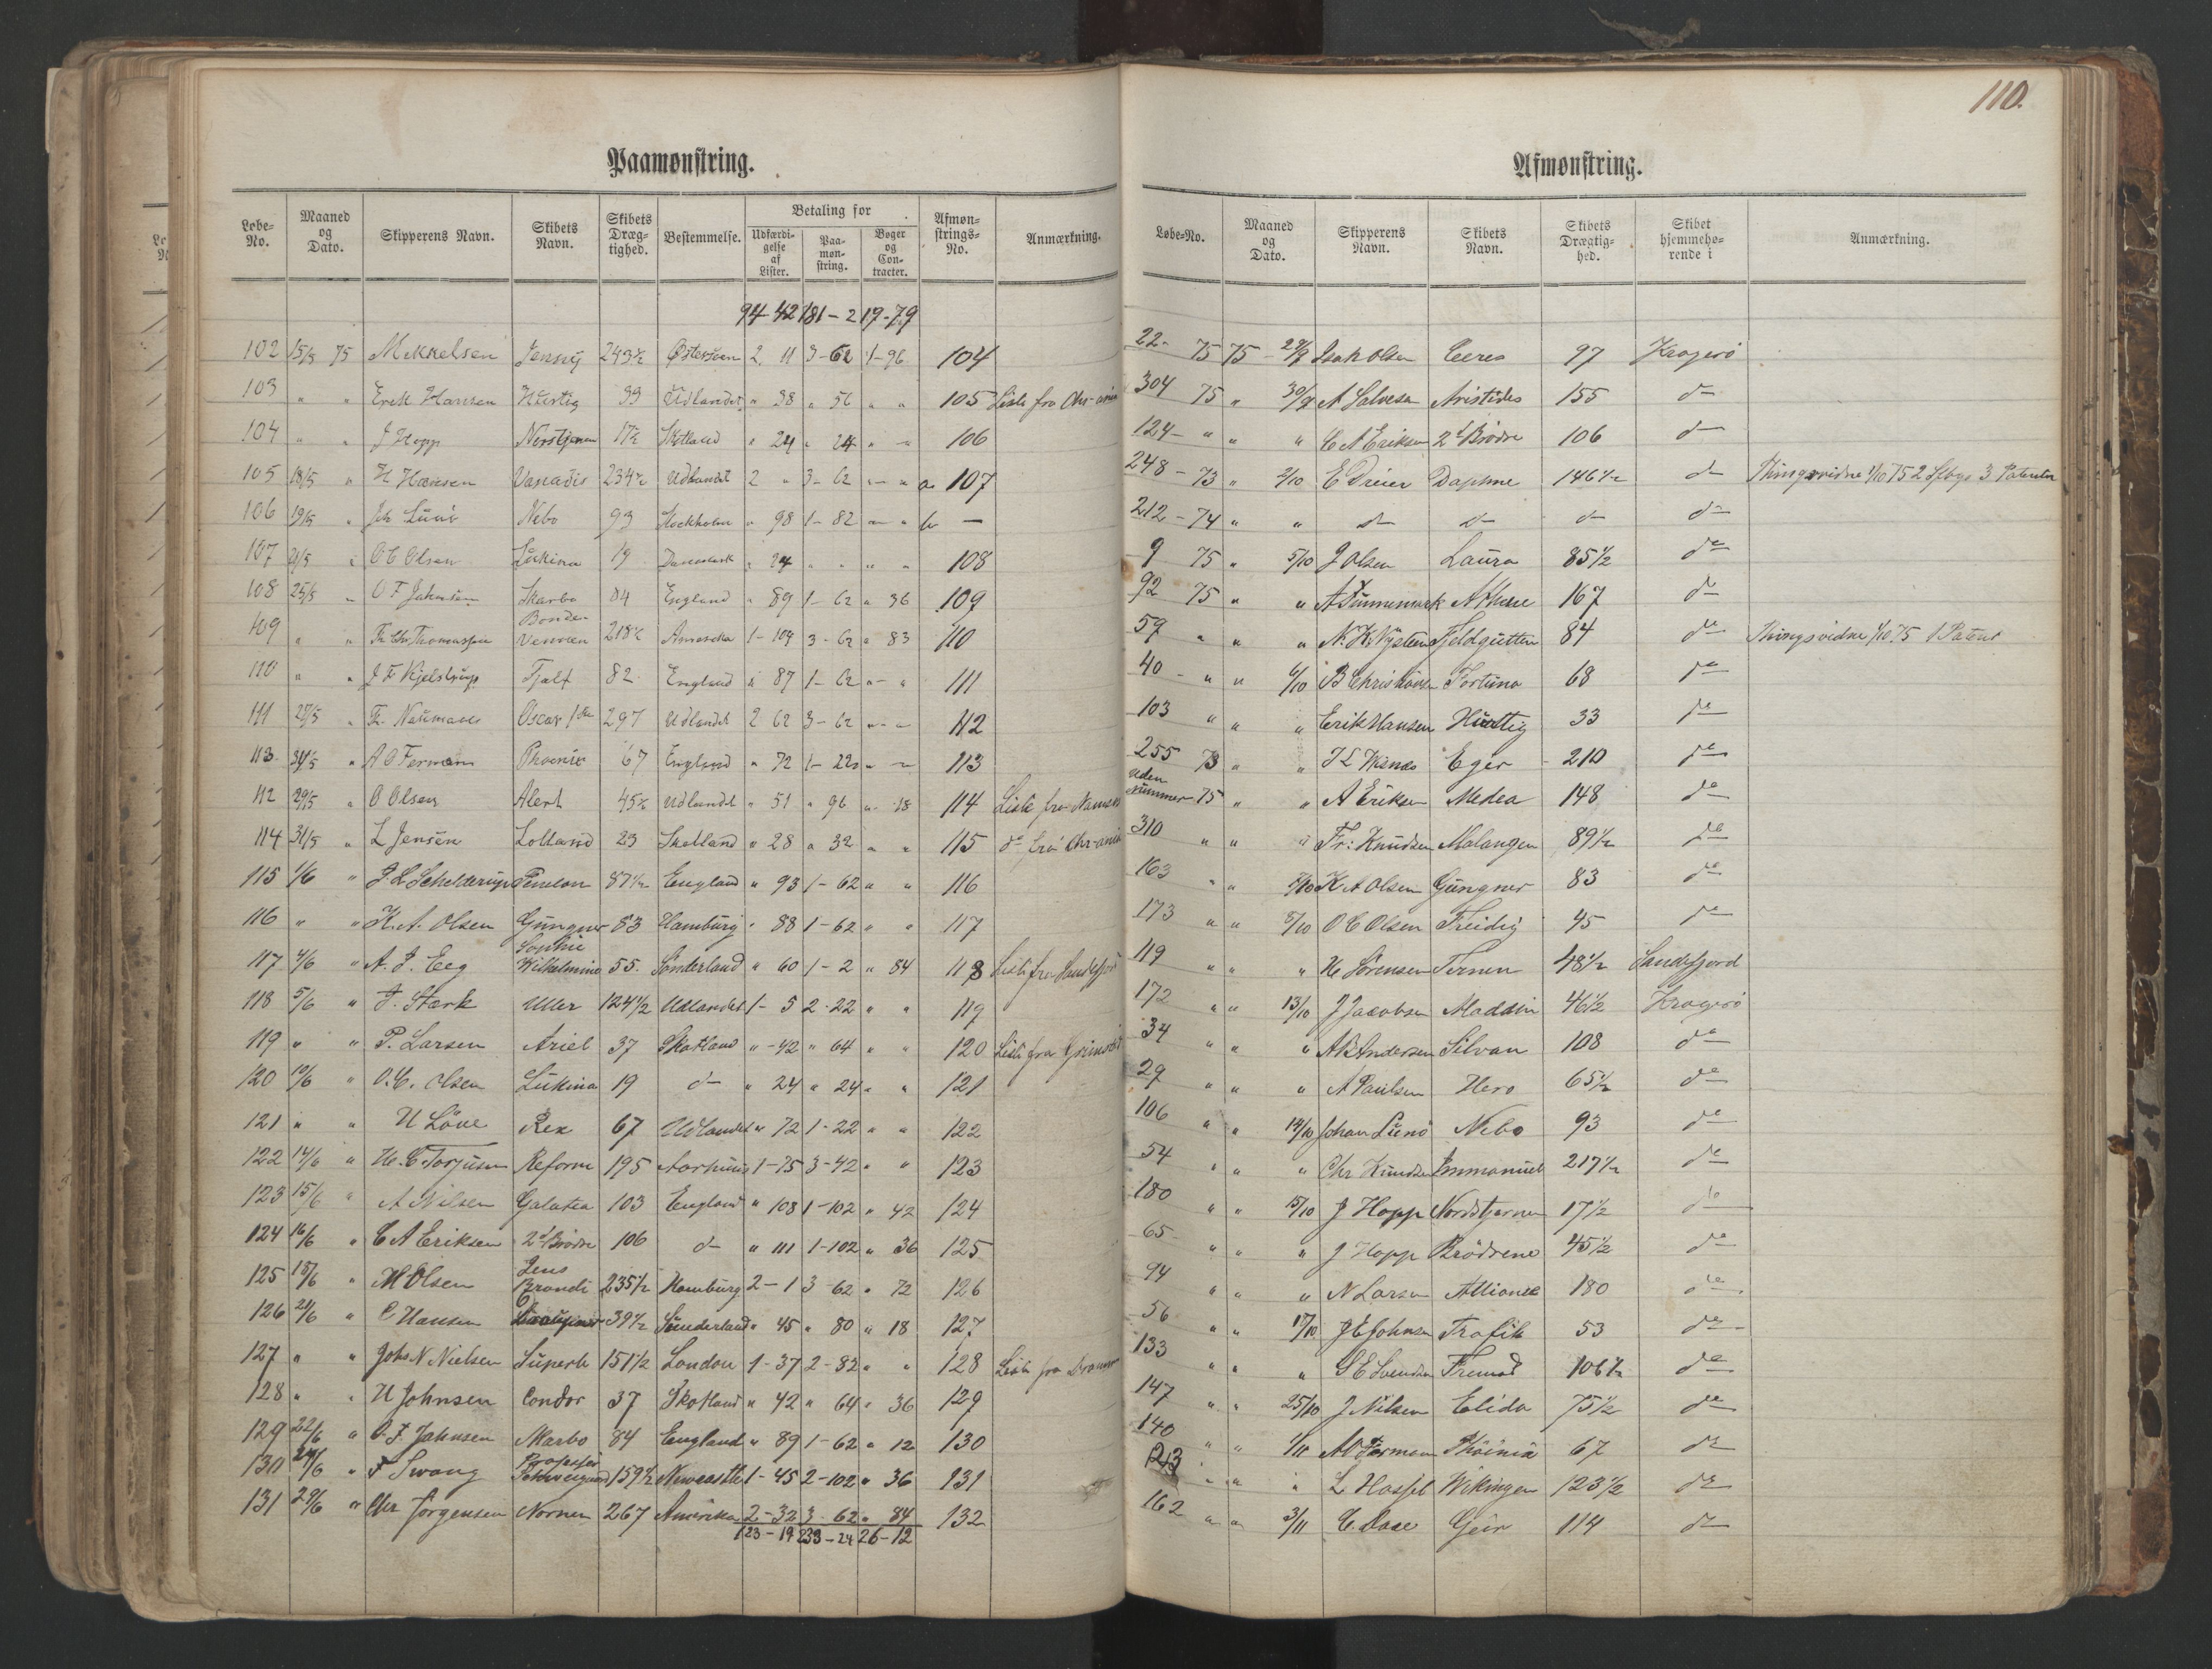 110.
Paamønstring.
Løbe-No. Maaned og Dato. Skipperens Navn. Skibets Navn. Skibets Dræg-tighed. Bestemmelse. Betaling for Udfærdi-gelse af Lister. Paa-møn-string. Bøger og Con-tracter. Afmøn-strings-No. Anmærkning.
94-42 181-2 19-79
102 15/5 75 Mikkelsen Jenny 243½ Østersøen 2 11 3-62 1-96 104
103 " " Erik Hansen Hurtig 33 Udlandet " 38 " 56 " " 105 Liste fra Chr-ania
104 " " J Hopp 17½ Skotland " 24 " 24 " " 106
105 18/5 " H Hansen Vanadis 234½ Udlandet 2 " 3-62 " " a 107
106 19/5 " Joh Lunø Nebo 93 Stockholm " 98 1-82 " " b —
107 21/5 " O C Olsen Lukina 19 Danmark " 24 " " " " 108
108 25/5 " O F Jahnsen 84 England " 89 1-62 " 36 109
109 " " Th. Chr. Thomassen Bonde-Vennen 218½ Amerika 1-104 3-62 " 83 110
110 " " J F Kjelstrup Tjalf 82 England " 87 1-62 " " 111
111 27/5 " Th. Naumann Oscar 1ste 297 Udlandet 2 62 3-62 " " 112
113 " A O Fermann Phoenix 67 England " 72 1-22 " " 113
112 29/5 " O Olsen Alert 45½ Udlandet " 51 " 96 " 18 114 Liste fra
114 31/5 " L Jensen Lolland 23 Skotland " 28 " 32 " " 115 do fra Chr-ania
115 1/6 " P. L Schelderup 87½ England " 93 1-62 " " 116
116 " " K. A. Olsen Gungner 83 Hamburg " 88 1-62 " " 117
117 4/6 " A. J. Eeg Sophie Wilhelmine 55. Sunderland " 60 1-2 " 84 118 Liste fra Sandefjord
118 5/6 " J. Stark Uller 124½ Udlandet 1-5 2-22 " " 119
119 " " P. Larsen Ariel 37 Skotland "-42 " 64 " " 120 Liste fra Grimstad
120 10/6 " O. C. Olsen Lukina 19 do " 24 " 24 " " 121
121 " " N Löve Rex 67 Udlandet " 72 1-22 " " 122
122 14/6 " H. C Torjusen Reform 195 Aarhuus 1-75 3-42 " " 123
123 15/6 " A Nilsen Galatea 103 England " 108 1-102 " 42 124
124 16/6 " C A Eriksen 2de Brödre 106 do " 111 1-102 " 36 125
125 15/6 " M Olsen Jens Brandi 235½ Hamburg 2-1 3-62 " 72 126
126 21/6 " C Hansen 39½ Sunderland " 45 " 80 " 18 127
127 " " Johs N Nielsen Superb 151½ London 1-37 2-82 " " 128 Liste fra
128 " " N Johnsen Condor 37 Skotland " 42 " 64 " 36 129
129 22/6 " O. F. Jahnsen 84 England " 89 1-62 " 12 130
130 24/6 " F Svang Professor Schweigaard 159½ Newcastle 1-45 2-102 " 36 131
131 29/6 " Chr Jörgensen Nornen 267 Amerika 2-32 3-62 " 84 132
123-19 233-24 26-12
Afmønstring.
Løbe-No. Maaned og Dato. Skipperens Navn. Skibets Navn. Skibets Drægtig-hed. Skibet hjemmehø-rende i Anmærkning.
22- 75 75 - 29/9 Isak Olsen Ceres 97 Kragerö
304 75 " 30/9 A Salvesen Aristides 155 do
124 - " " " C A Eriksen 2de Brödre 106 do
248 - 73 " 2/10 E Dreier Daphne 146½ do Thingsvidne 1/10 75 2 3 Patenter
212 - 74 " " do do do do
9 75 " 5/10 J Olsen Laura 85½ do
92 75 " " A Tünnemark 167 do
59 " " " N. K. Nysteen Fjeldgutten 84 do Thingsvidne 1/10 75 1 Patent
40 - " " 6/10 B Christiansen Fortuna 68 do
103 " " " Erik Hansen Hurtig 33 do
255 73 " " Eger 210 do
uden Nummer 75 " " A Eriksen Medea 148 do
310 " " " Fr: Knudsen Malangen 89½ do
163 " " K A Olsen Gungner 83 do
173 " " 8/10 O C Olsen Freidig 45 do
119 " " " H Sörensen Ternen 48½ Sandefjord
172 " " 13/10 J Jacobsen Aladdin 46½ Kragerö
34 " " " A B Andersen Silvan 108 do
29 " " " A Paulsen Hero 65½ do
106 " " 14/10 Johan Lunö Nebo 93 do
54 " " " Chr Knudsen Emmanuel 217½ do
180 " " 15/10 J Hopp Nordstjernen 17½ do
65 " " " J Hopp Brödrene 45½ do
94 " " " N Larsen Alliance 180 do
56 " " 17/10 J E Johnsen Trafik 53 do
133 " " " S E Svendsen Fremad 106½ do
147 " " 25/10 J Nilsen Elida 75½ do
140 " " 1/11 A O Fermann Phöinix 67 do
123 " " " L Hassel Wikingen 123½ do
162 " " 3/11 C. Aase Geir 114 do